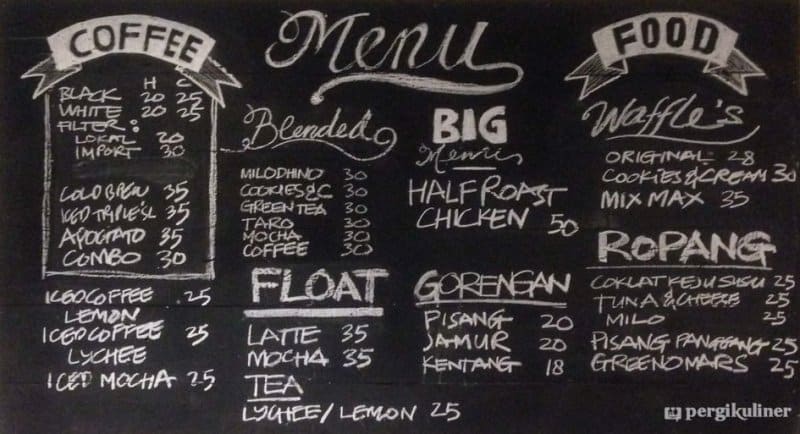 Menu
COFFEE
H C
BLACK 20 25
WHITE 20 25
FILTER:
LOKAL 20
IMPORT 30
COLD BREW 35
ICED TRIPLE'SL 35
APOGATO 35
COMBO 30
ICED COFFEE 25
LEMON
ICED COFFEE 25
LYCHEE
ICED MOCHA 25
Blended
MILODHINO 30
COOKIES & C 30
GREEN TEA 30
TARO 30
MOCHA 30
COFFEE 30
FLOAT
LATTE 35
MOCHA 35
TEA
LYCHEE/LEMON 25
BIG
Menus
HALF ROAST
CHICKEN 50
GORENGAN
PISANG 20
JAMUR 20
KENTANG 18
FOOD
Waffle's
ORIGINAL 28
COOKIES & CREAM 30
MIX MAX 35
ROPANG
COKLAT KEJU SUSU 25
TUNA & CHEESE 25
MILO 25
PISANG PANGGANG 25
GREENOMARS 25
pergikuliner